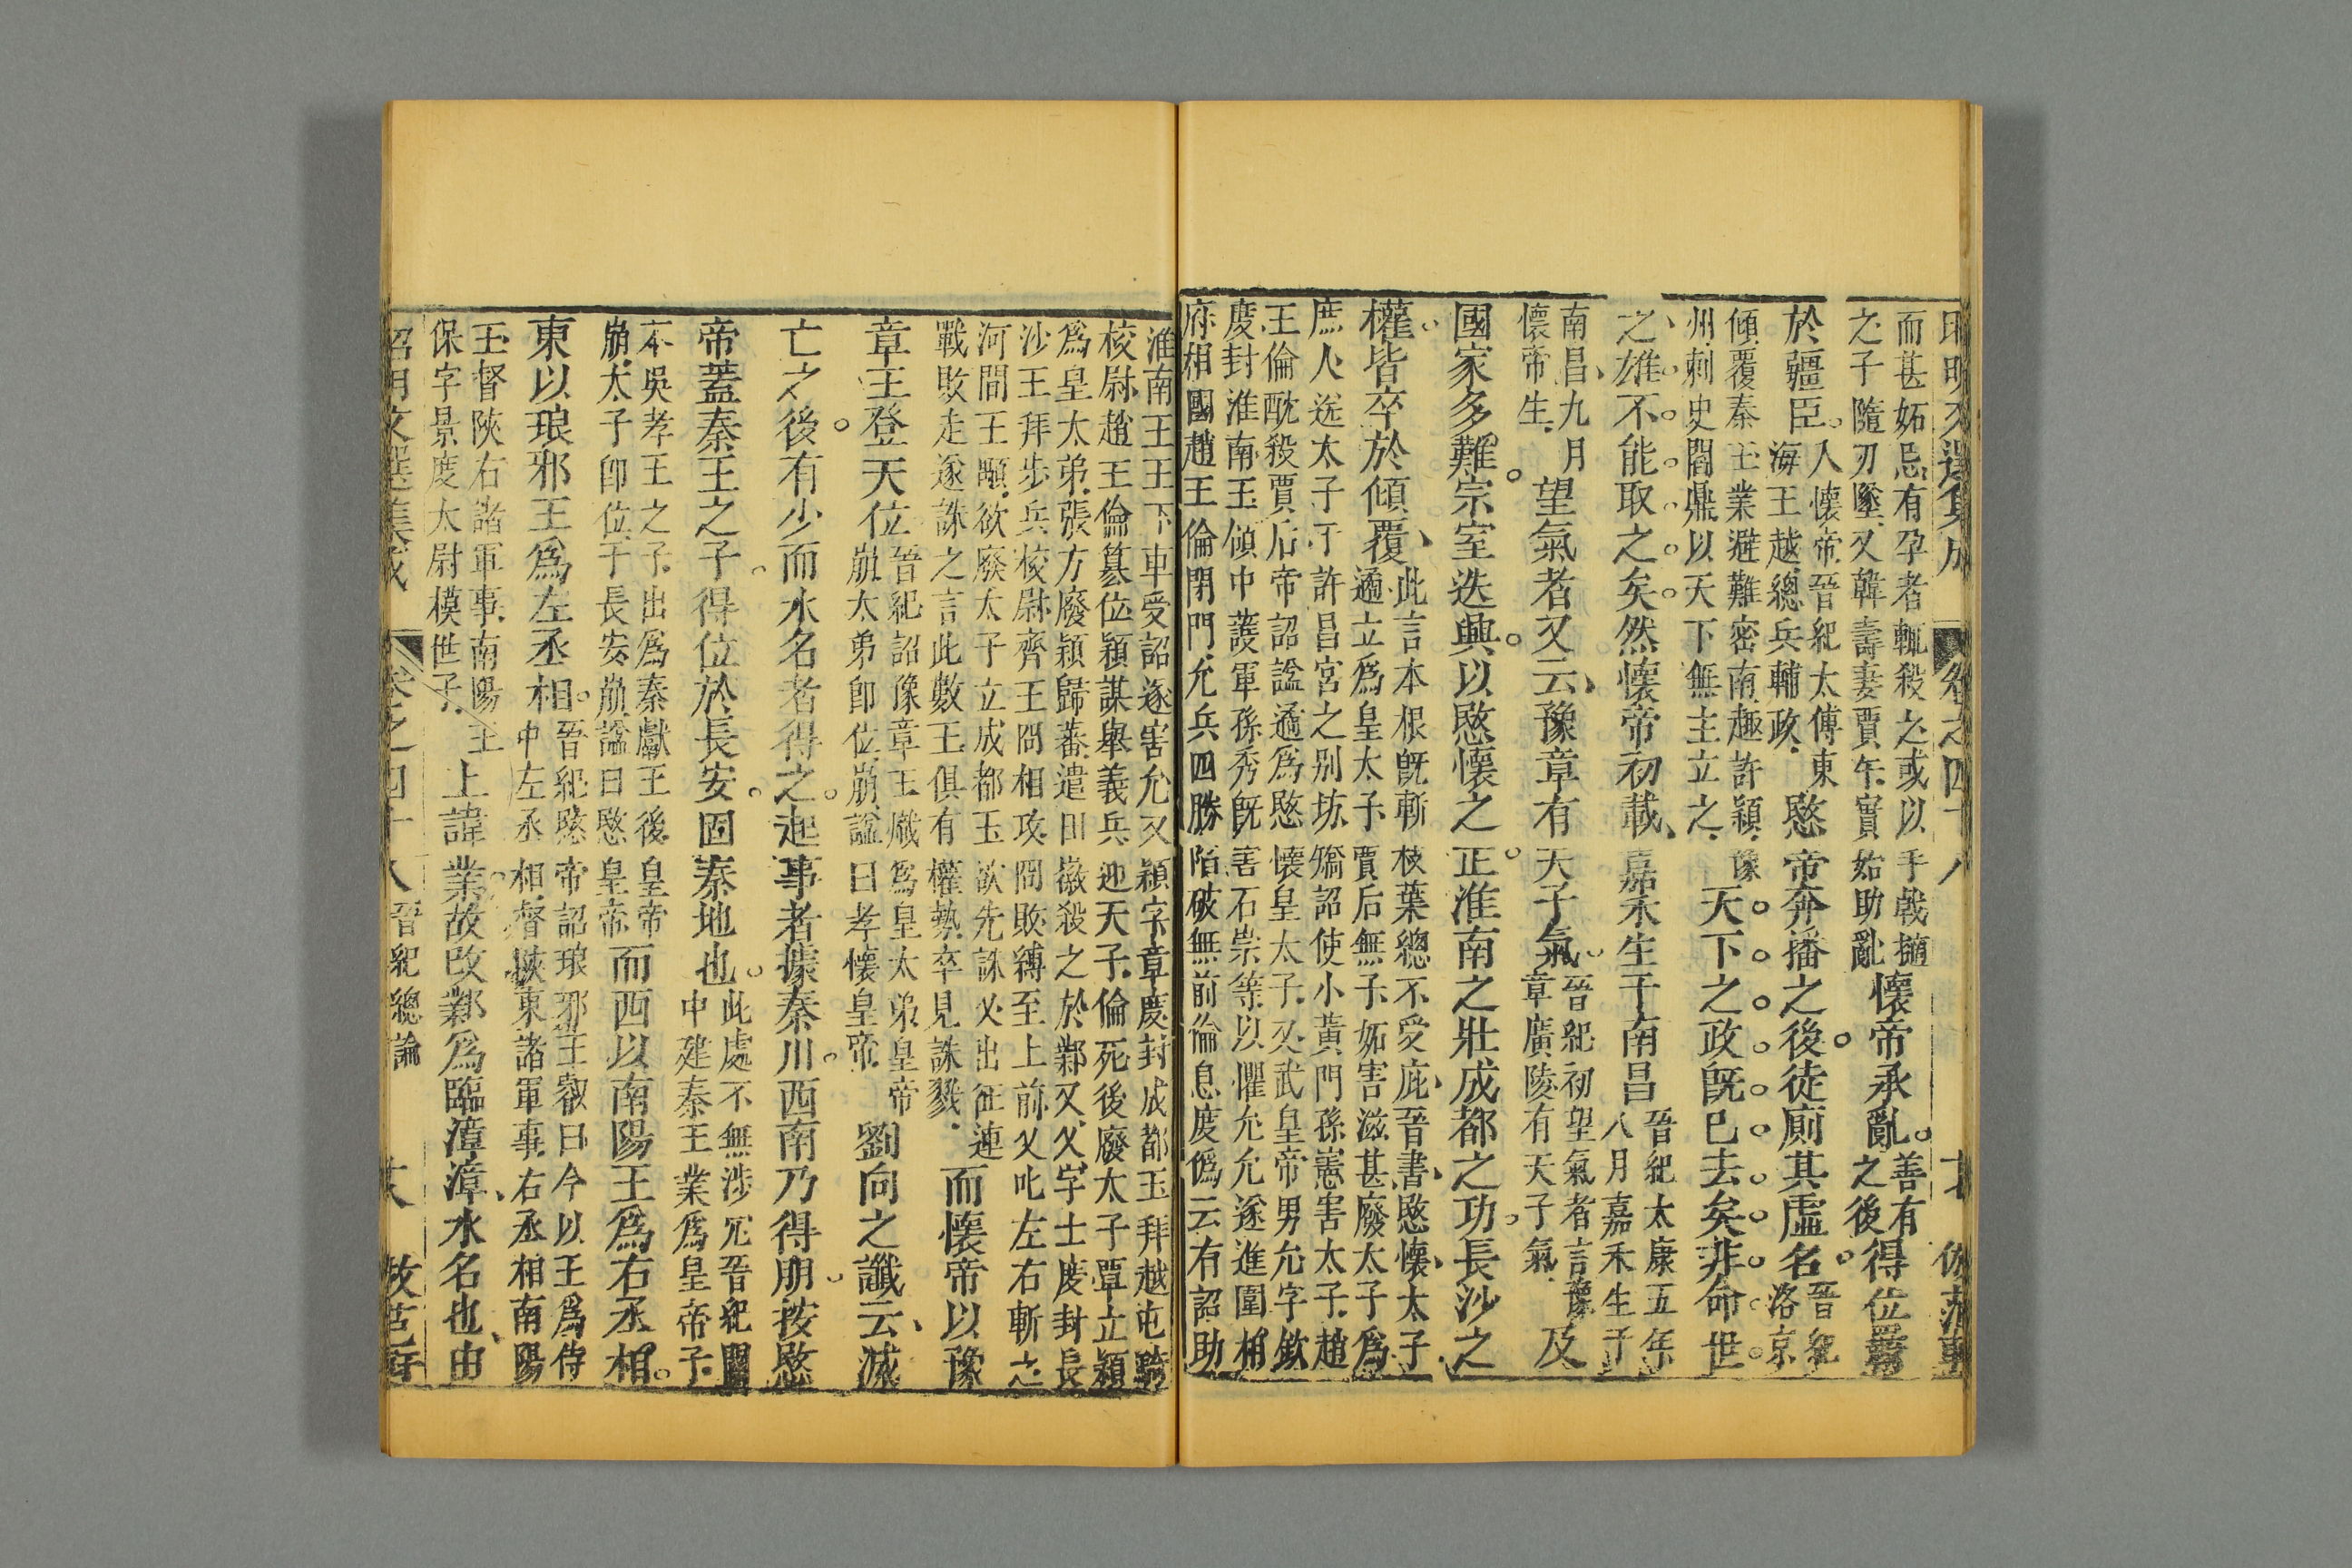 昭明文選集成 卷之四十八
而甚妬忌有孕者輒殺之或以手戟擿
之子隨刃墜又韓壽妻賈午實始助亂
懷帝承亂
善有
之後
得位羇
於疆臣
人懷帝晉紀太傅東
海王越總兵輔政
愍帝奔播之後徒廁其虛名
晉紀
洛京
傾覆秦王業避難密南趣許潁豫
州刺史閻鼎以天下無主立之
天下之政既已去矣非命世
之雄不能取之矣然懷帝初載嘉禾生于南昌
晉紀太康五年
八月嘉禾生于
南昌九月
懷帝生
望氣者又云豫章有天子氣
晉紀初望氣者言豫
章廣陵有天子氣
及
國家多難宗室迭興以愍懷之正淮南之壯成都之功長沙之
權皆卒於傾覆
此言本根既斬枝葉總不受庇晉書愍懷太子
遹立爲皇太子賈后無子妬害滋甚廢太子爲
庶人送太子于許昌宮之别坊矯詔使小黃門孫慮害太子趙
王倫酖殺賈后帝詔謚遹爲愍懷皇太子又武皇帝男允字欽
度封淮南王傾中護軍孫秀既害石崇等以懼允允遂進圍相
府相國趙王倫閉門允兵四勝陷破無前倫息度僞云有詔助
淮南王王下車受詔遂害允又潁字章度封成都王拜越屯騎
校尉趙王倫篡位潁謀舉義兵迎天子倫死後廢太子覃立潁
爲皇太弟張方廢潁歸蕃遣田徽殺之於鄴又乂字士度封長
沙王拜步兵校尉齊王冏相攻冏敗縛至上前乂叱左右斬之
河間王顒欲廢太子立成都王欲先誅乂出征連
戰敗走遂誅之言此數王俱有權勢卒見誅戮
而懷帝以豫
章王登天位
晉紀詔豫章王熾爲皇太弟皇帝
崩太弟即位崩謚曰孝懷皇帝
劉向之讖云滅
亡之後有少而水名者得之起事者據秦川西南乃得朋按愍
帝蓋秦王之子得位於長安固秦地也
此處不無涉冗晉紀閻
中建秦王業爲皇帝子
本吳孝王之子出爲秦獻王後皇帝
崩太子即位于長安崩謚曰愍皇帝
而西以南陽王爲右丞相
東以琅邪王爲左丞相
晉紀愍帝詔琅邪王叡曰今以王爲侍
中左丞相督陝東諸軍事右丞相南陽
王督陝右諸軍事南陽王
保字景度大尉模世子
上諱業故改鄴爲臨漳漳水名也由
昭明文選集成 卷之四十八 晉紀總論